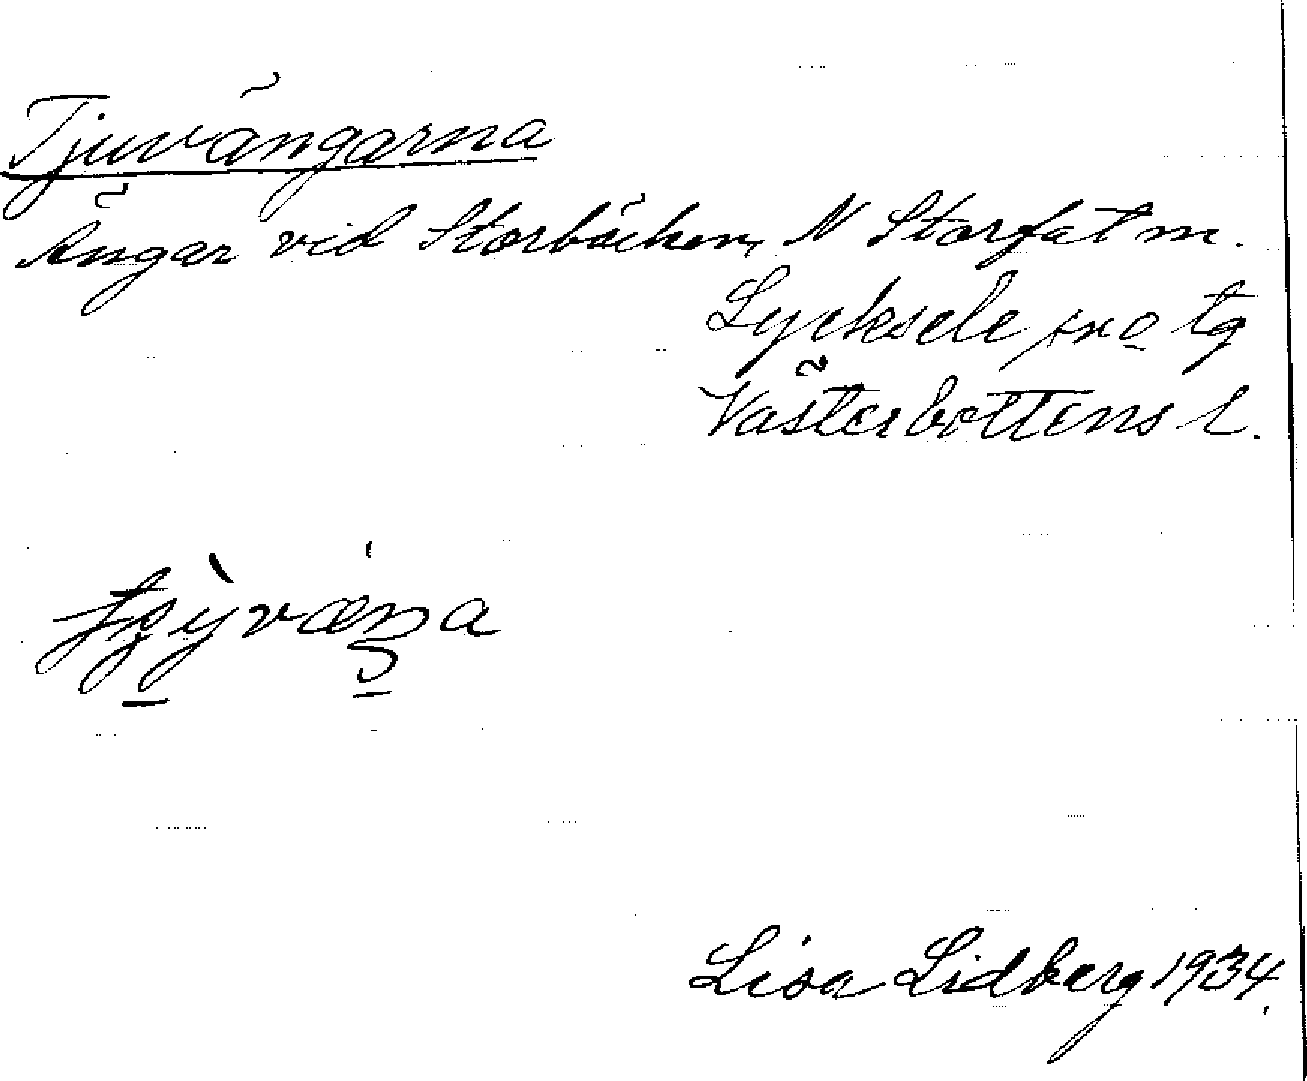 Tjuvängarna
Ängar vid Storbäcken, N Storfatm.
Lycksele sn o tg
Västerbottens l.
Lisa Lidberg 1934.